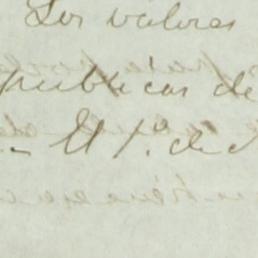 Los valores
publicas de
- El 1º. de